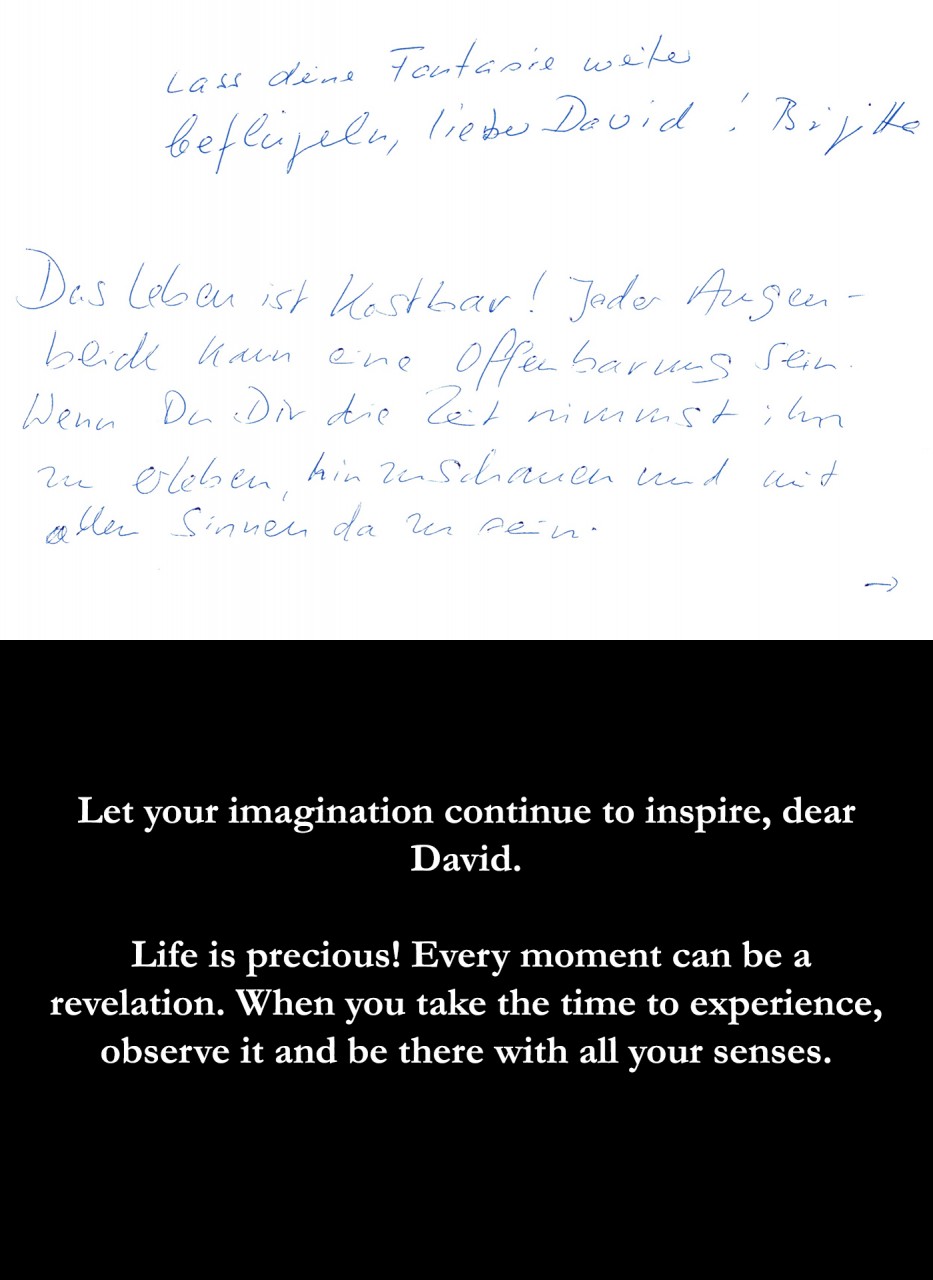 Lass deine Fantasie weiter
beflügeln, lieber David! Brigitte
Das Leben ist Kostbar! Jeder Augen-
blick kann eine Offenbarung sein.
Wenn Du Dir die Zeit nimmst ihn
zu erleben, hinzuschauen und mit
allen Sinnen da zu sein.
→
Let your imagination continue to inspire, dear
David.
Life is precious! Every moment can be a
revelation. When you take the time to experience,
observe it and be there with all your senses.